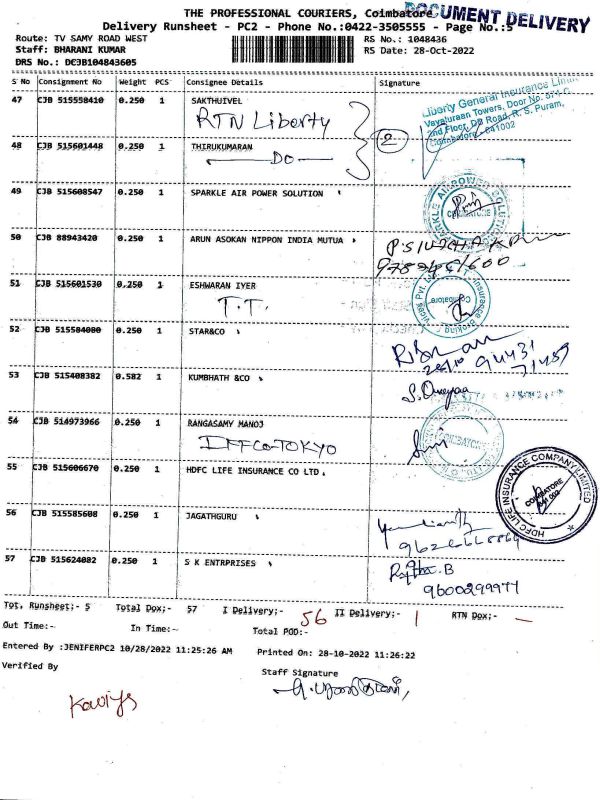 THE PROFESSIONAL COURIERS, Coimbatore
DOCUMENT DELIVERY
Delivery Runsheet - PC2 - Phone No.:0422-3505555 - Page No.:5
Route: TV SAMY ROAD WEST RS No.: 1048436
Staff: BHARANI KUMAR RS Date: 28-Oct-2022
DRS No.: DCJB104843605
S No Consignment No Weight PCS Consignee Details Signature
47 CJB 515558410 0.250 1 SAKTHUIVEL
RTN Liberty
Liberty General Insurance Limi
2nd Floor, DB Road, R. S. Puram,
Coimbatore - 641002
2
48 CJB 515601448 0.250 1 THIRUKUMARAN
DO
49 CJB 515608547 0.250 1 SPARKLE AIR POWER SOLUTION
SPARKLE AIR POWER SOLUTION
COIMBATORE
50 CJB 88943420 0.250 1 ARUN ASOKAN NIPPON INDIA MUTUA
51 CJB 515601530 0.250 1 ESHWARAN IYER
T.T.
Coimbatore
52 CJB 515584080 0.250 1 STAR&CO
94431
71459
53 CJB 515408382 0.582 1 KUMBHATH &CO
54 CJB 514973966 0.250 1 RANGASAMY MANOJ
IFFCO-TOKYO
55 CJB 515606670 0.250 1 HDFC LIFE INSURANCE CO LTD.
HDFC LIFE INSURANCE COMPANY LIMITED
COIMBATORE
641 002
56 CJB 515585608 0.250 1 JAGATHGURU
57 CJB 515624082 0.250 1 S K ENTRPRISES
9600299977
Tot. Runsheet;- 5 Total Dox;- 57 I Delivery;- 56 II Delivery;- 1 RTN Dox;- -
Out Time:- In Time:- Total POD:-
Entered By :JENIFERPC2 10/28/2022 11:25:26 AM Printed On: 28-10-2022 11:26:22
Verified By Staff Signature